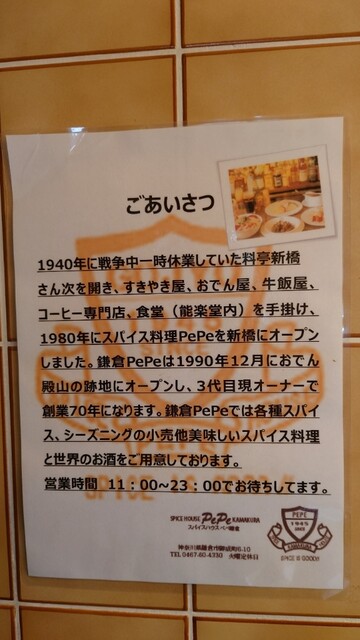 ごあいさつ
1940年に戦争中一時休業していた料亭新橋
さん次を開き、すきやき屋、おでん屋、牛飯屋、
コーヒー専門店、食堂（能楽堂内）を手掛け、
1980年にスパイス料理PePeを新橋にオープン
しました。鎌倉PePeは1990年12月におでん
殿山の跡地にオープンし、3代目現オーナーで
創業70年になります。鎌倉PePeでは各種スパイ
ス、シーズニングの小売他美味しいスパイス料理
と世界のお酒をご用意しております。
営業時間　11：00～23：00でお待ちしてます。
SPICE HOUSE PePe KAMAKURA
スパイスハウス ペペ鎌倉
神奈川県鎌倉市御成町6-10
TEL 0467-60-4330　火曜定休日
PEPE
KAMAKURA